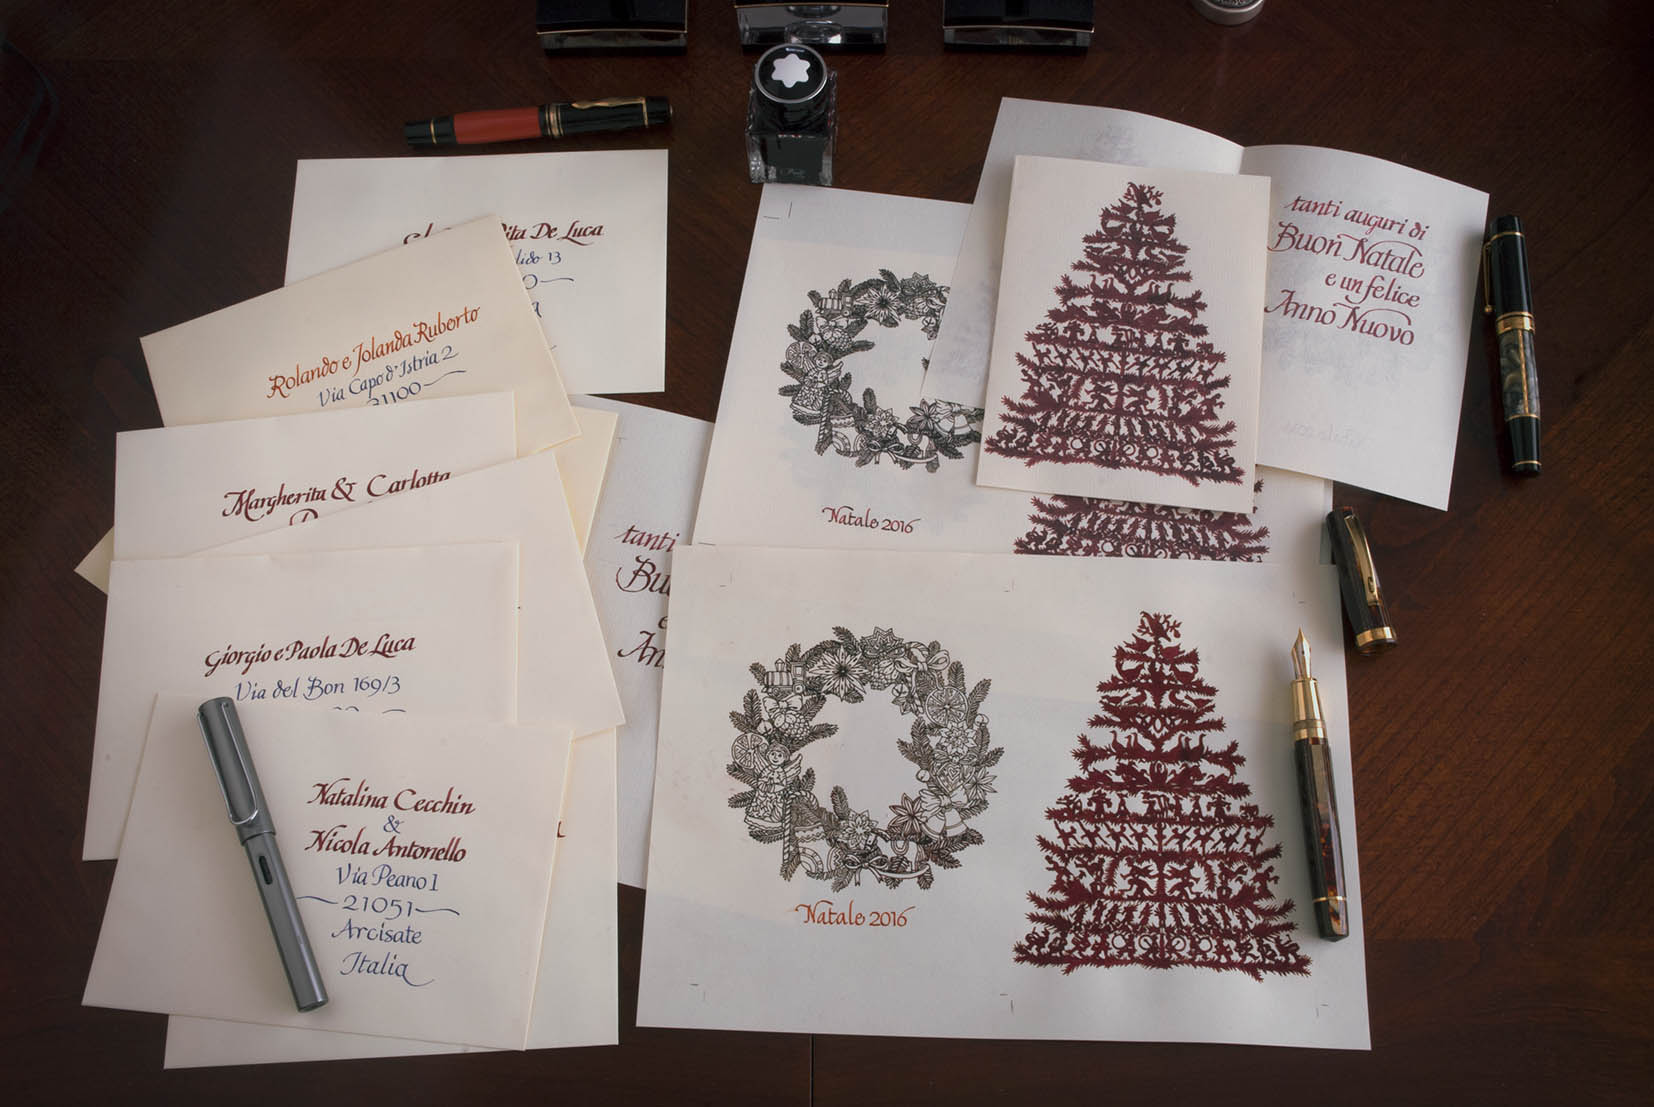 De Luca
13
Rolando e Jolanda Ruberto
Via Capo d'Istria 2
21100
Margherita & Carlotta
Giorgio e Paola De Luca
Via del Bon 169/3
Natalina Cecchin
&
Nicola Antonello
Via Peano 1
21051
Arcisate
Italia
tanti
Natale 2016
tanti auguri di
Buon Natale
e un felice
Anno Nuovo
Natale 2016